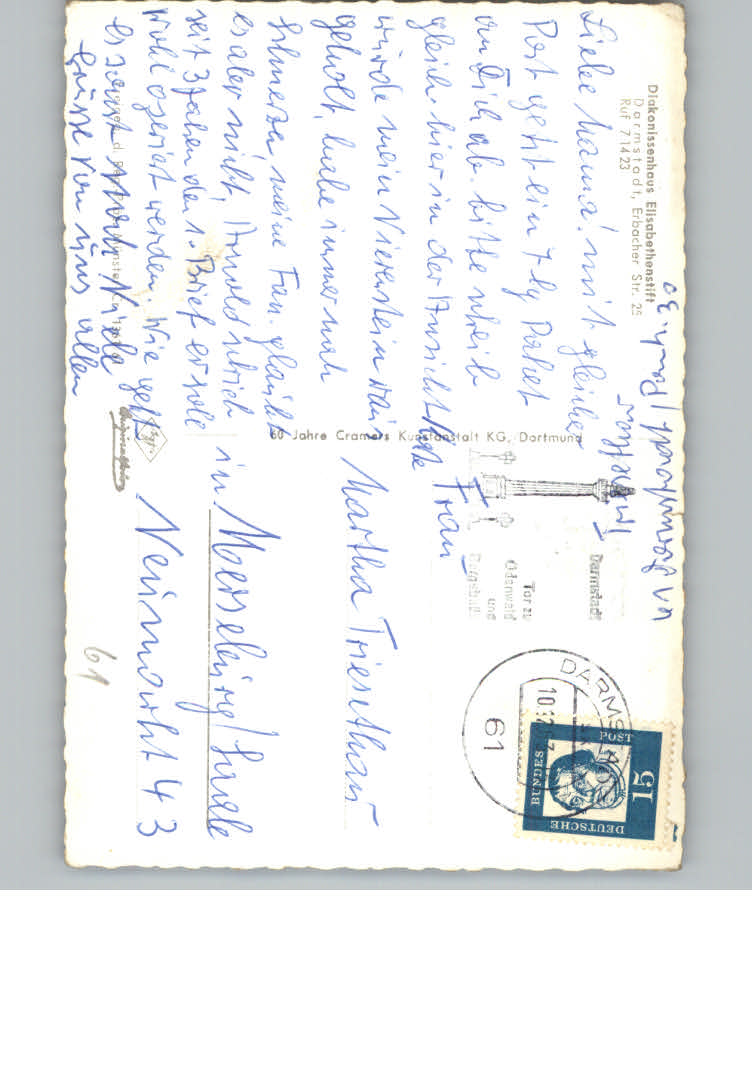 Diakonissenhaus Elisabethenstift
Darmstadt, Erbacher Str. 25
Ruf 71423
Liebe Mama! mit gleicher
Post geht ein 7 kg Paket
an Dich ab. bitte schreib
gleich. hier in der Ansichtkarte
wurde mein Nierenstein raus
geholt, habe immer noch
Schmerzen meine Fam. glaubt
es aber nicht, Arnold schrieb
seit 3 Jahren den 1. Brief er soll
wohl operiert werden. Wie geht
es sonst Viele
Grüsse von uns allen
60 Jahre Cramers Kunstanstalt KG, Dortmund
Darmstadt
Tor zu
Odenwald
und
Bergstraße
DARMSTADT
61
DEUTSCHE
BUNDES
POST
15
Frau
Martha Triesethau
in Merseburg/Saale
Neumarkt 43
61